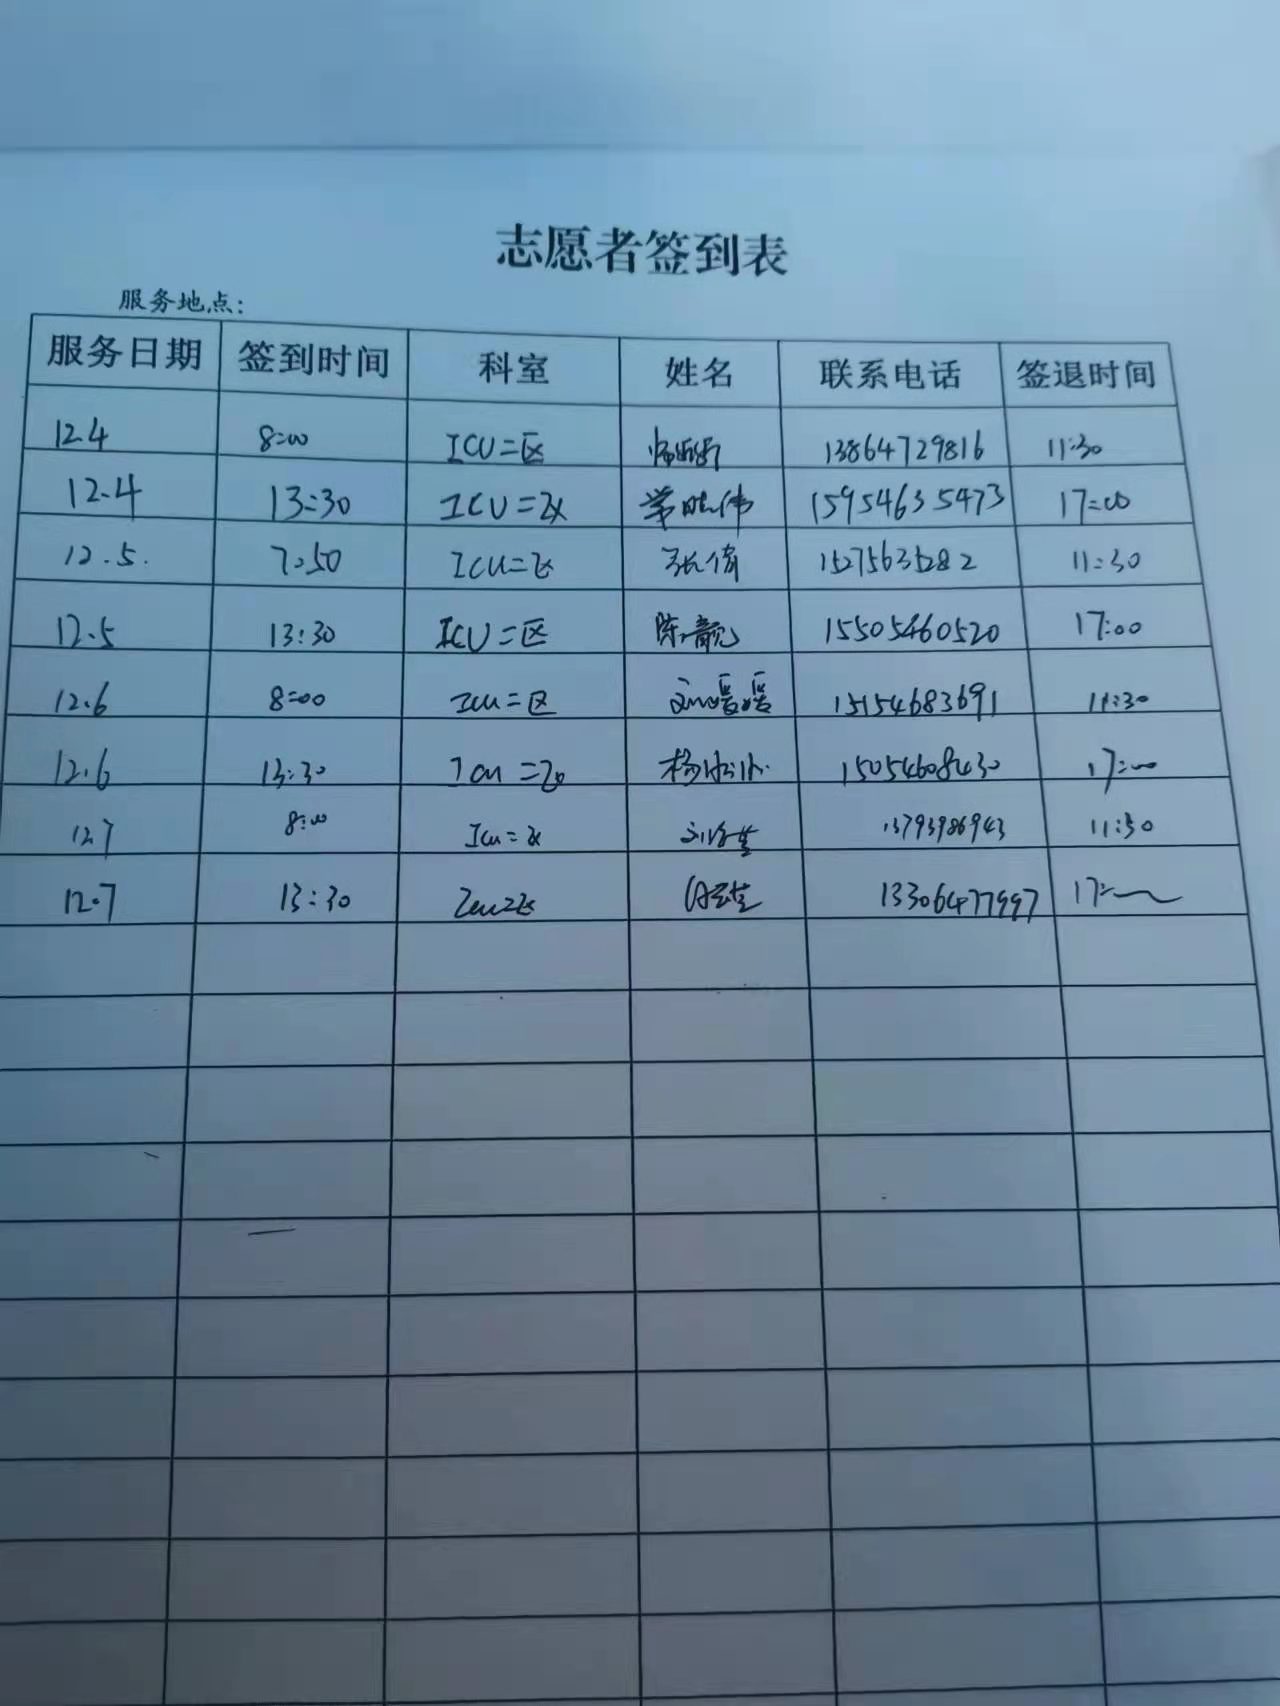 志愿者签到表
服务地点:
服务日期 签到时间 科室 姓名 联系电话 签退时间
12.4 8:00 ICU二区 13864729816 11:30
12.4 13:30 ICU二区 常晓伟 15954635473 17:00
12.5. 7:50 ICU二区 张倩 15275635282 11:30
12.5 13:30 ICU二区 陈靓 15505460520 17:00
12.6 8:00 ICU二区 刘媛媛 15154683691 11:30
12.6 13:30 ICU二区 杨 15054608430 17:00
12.7 8:00 ICU二区 刘 13793986943 11:30
12.7 13:30 ICU二区 13306477997 17: